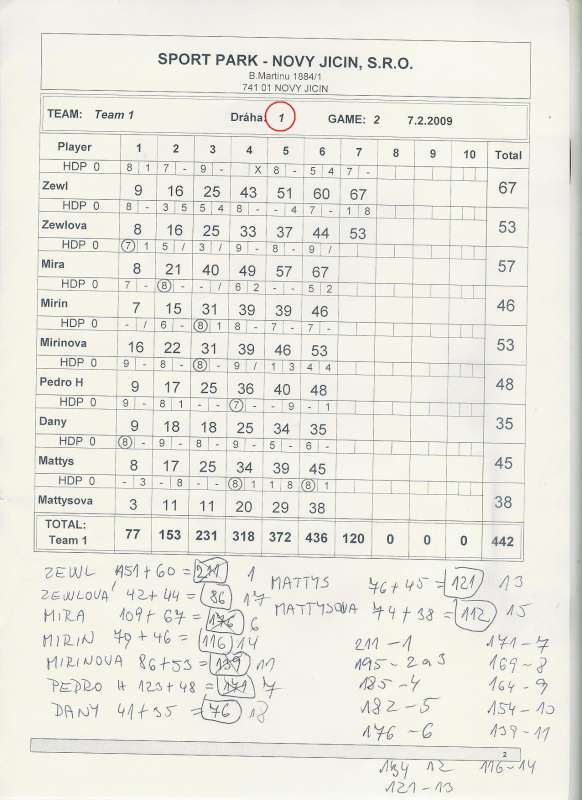 SPORT PARK - NOVY JICIN, S.R.O.
B.Martinu 1884/1
741 01 NOVY JICIN
TEAM: Team 1 Dráha: 1 GAME: 2 7.2.2009
Player 1 2 3 4 5 6 7 8 9 10 Total
HDP 0 8 1 7 - 9 - X 8 - 5 4 7 -
Zewl 9 16 25 43 51 60 67 67
HDP 0 8 - 3 5 5 4 8 - - 4 7 - 1 8
Zewlova 8 16 25 33 37 44 53 53
HDP 0 7 1 5 / 3 / 9 - 8 - 9 /
Mira 8 21 40 49 57 67 57
HDP 0 7 - 8 - - / 6 2 - - 5 2
Mirin 7 15 31 39 39 46 46
HDP 0 - / 6 - 8 1 8 - 7 - 7 -
Mirinova 16 22 31 39 46 53 53
HDP 0 9 - 8 - 8 - 9 / 1 3 4 4
Pedro H 9 17 25 36 40 48 48
HDP 0 9 - 8 1 - - 7 - - 9 - 1
Dany 9 18 18 25 34 35 35
HDP 0 8 - 9 - 8 - 9 - 5 - 6 -
Mattys 8 17 25 34 39 45 45
HDP 0 - 3 - 8 - - 8 1 1 8 8 1
Mattysova 3 11 11 20 29 38 38
TOTAL:
Team 1 77 153 231 318 372 436 120 0 0 0 442
ZEWL 151 + 60 = 211 1
ZEWLOVÁ 42 + 44 = 86 17
MIRA 109 + 67 = 176 6
MIRIN 70 + 46 = 116 14
MIRINOVA 86 + 53 = 139 11
PEDRO H 123 + 48 = 171 7
DANY 41 + 35 = 76 18
MATTYS 76 + 45 = 121 13
MATTYSOVA 74 + 38 = 112 15
211 - 1
195 - 2 a 3
185 - 4
182 - 5
176 - 6
171 - 7
169 - 8
164 - 9
154 - 10
139 - 11
2
134 12
121 - 13
116 - 14